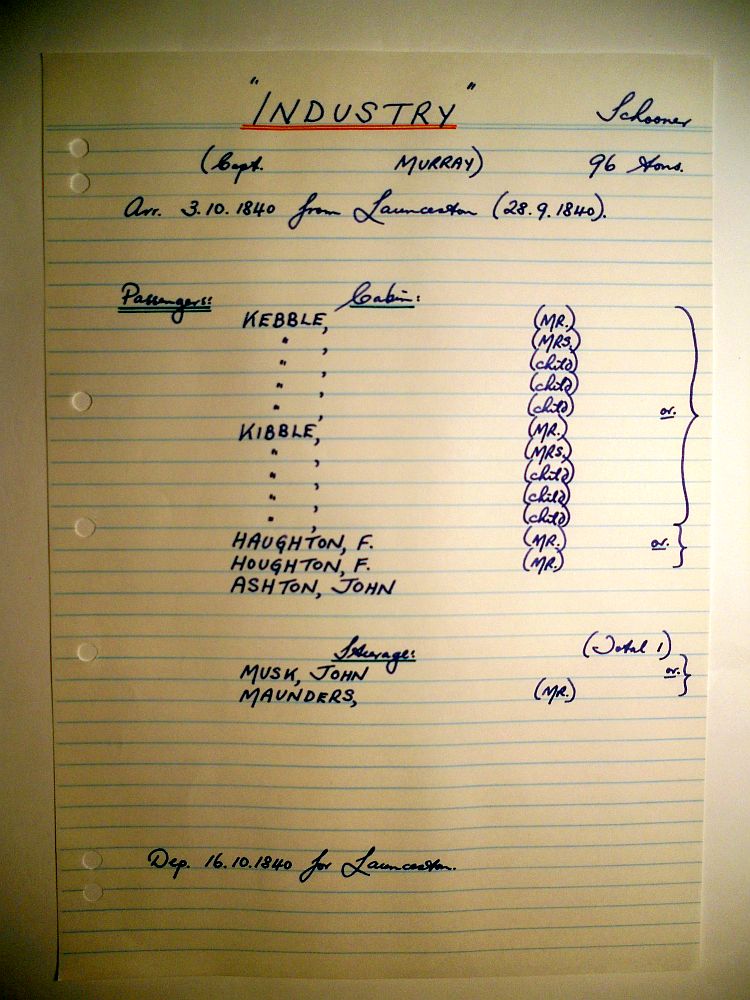 "INDUSTRY" Schooner
(Capt. MURRAY) 96 tons.
Arr. 3.10.1840 from Launceston (28.9.1840).
Passengers: Cabin:
KEBBLE, (MR.)
" , (MRS.)
" , (child)
" , (child)
" , (child) or.
KIBBLE, (MR.)
" , (MRS.)
" , (child)
" , (child)
" , (child)
HAUGHTON, F. (MR.) or.
HOUGHTON, F. (MR.)
ASHTON, JOHN
Steerage: (Total 1)
MUSK, JOHN or.
MAUNDERS, (MR.)
Dep. 16.10.1840 for Launceston.